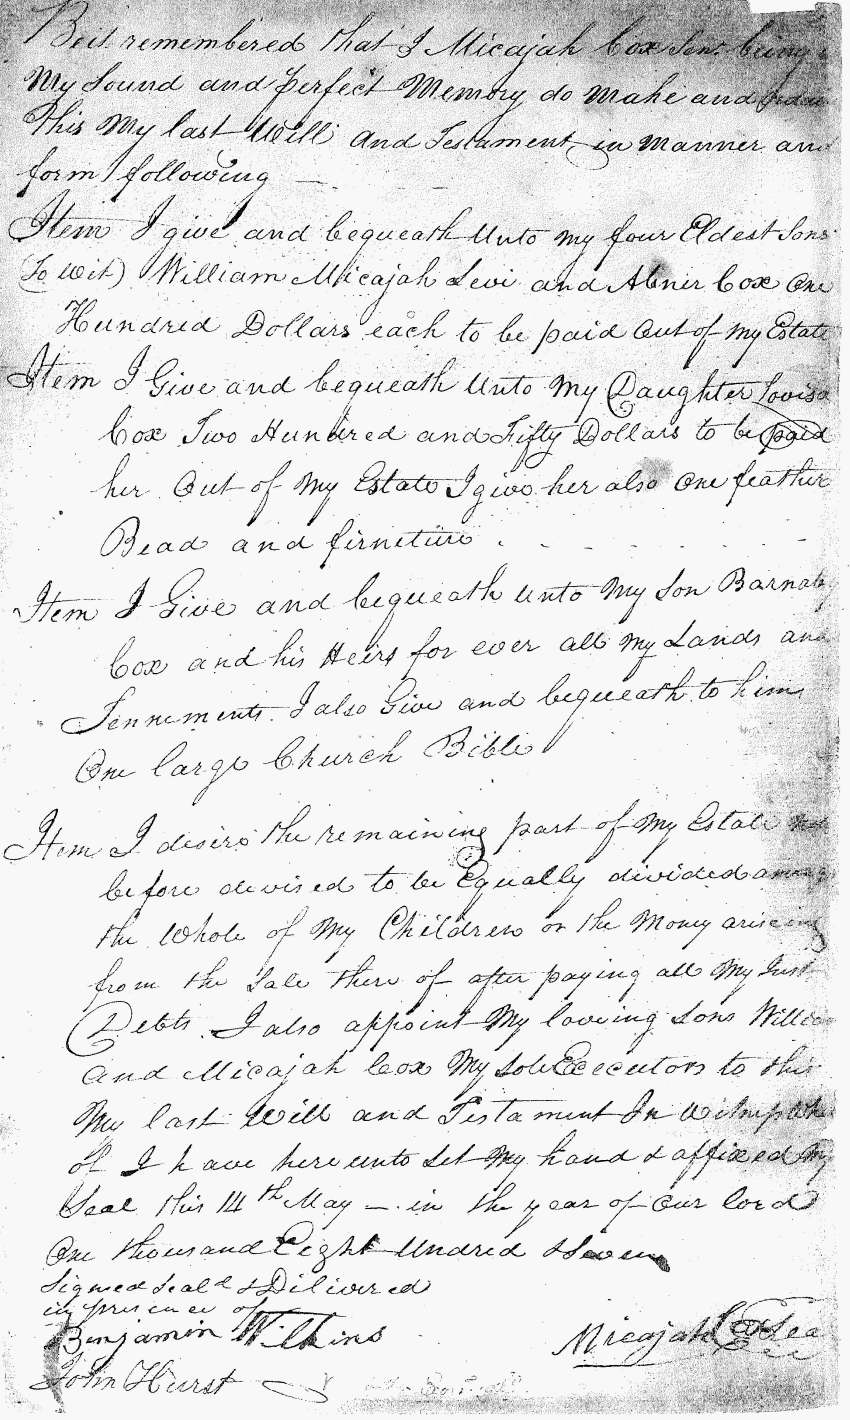 Beit remembered that I Micajah Cox Senr. being
My Sound and perfect Memory do make and
this My last Will and Testament in manner and
form following —
Item I give and bequeath unto my four Eldest Sons
(To Wit) William Micajah Levi and Abner Cox One
Hundred Dollars each to be paid out of my Estate
Item I Give and bequeath unto My Daughter Lovisa
Cox Two Hundred and Fifty Dollars to be paid
her out of My Estate I give her also one feather
Bead and firneture
Item I Give and bequeath unto My Son Barnaby
Cox and his Heirs for ever all my Lands and
Tennements. I also Give and bequeath to him
One large Church Bible
Item I desire the remaining part of My Estate not
before devised to be Equally divided among
the whole of My Children or the Money ariseing
from the Sale there of after paying all My Just
Debts. I also appoint My loveing Sons William
and Micajah Cox My sole Excecutors to this
My last Will and Testament In Witness Where
of I have here unto Set My hand & affixed My
Seal this 14th May — in the year of our lord
One thousand Eight Undred & Seven
Signed Seald & Dilivered
in presence of
Benjamin Wilkins
Micajah Cox Sea
John Hurst